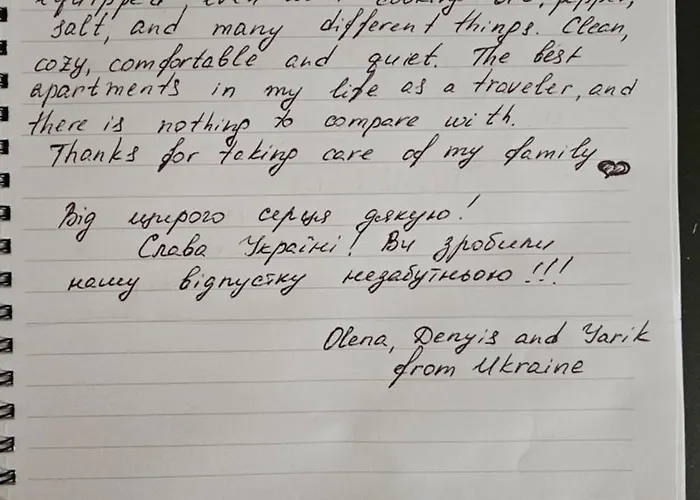 equipped, even
salt, and many different things. Clean,
cozy, comfortable and quiet. The best
apartments in my life as a traveler, and
there is nothing to compare with.
Thanks for taking care of my family
Від щирого серця дякую!
Слава Україні! Ви зробили
нашу відпустку незабутньою!!!
Olena, Denyis and Yarik
from Ukraine